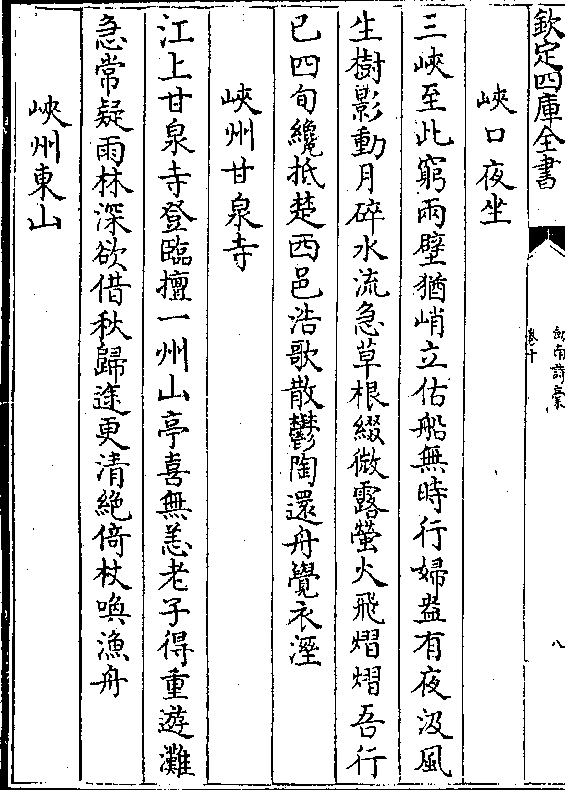 欽定四庫全書
劍南詩稾
卷十
八
峽口夜坐
三峽至此窮兩壁猶峭立估船無時行婦盎有夜汲風
生樹影動月碎水流急草根綴微露螢火飛熠熠吾行
已四旬纔抵楚西邑浩歌散鬱陶還舟覺衣溼
峽州甘泉寺
江上甘泉寺登臨擅一州山亭喜無恙老子得重遊灘
急常疑雨林深欲借秋歸途更清絶倚杖喚漁舟
峽州東山